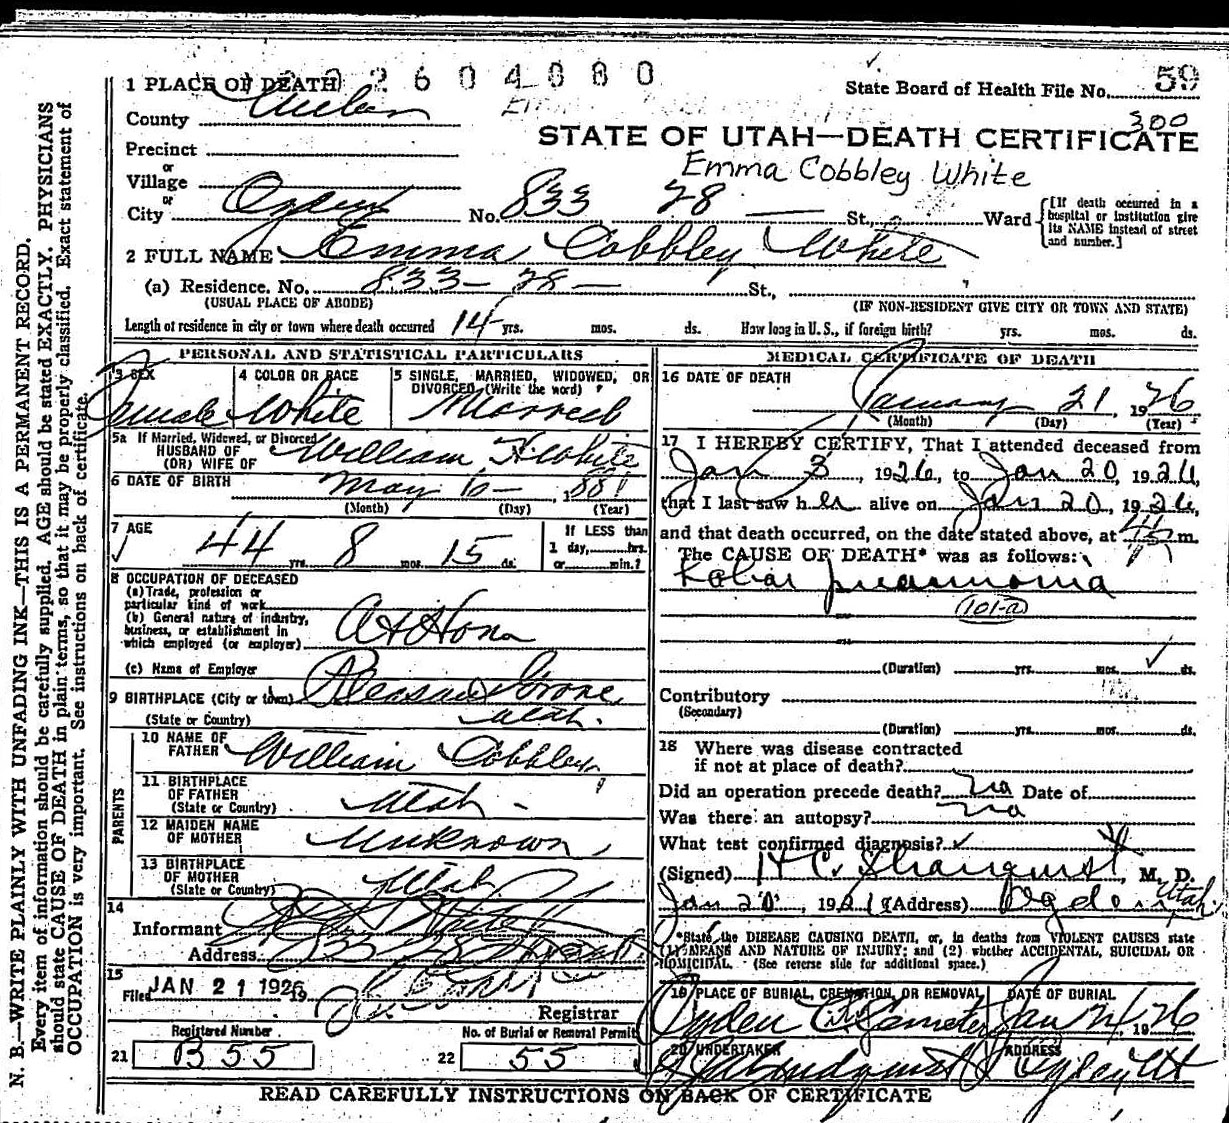 1 PLACE OF DEATH 2604000
State Board of Health File No. 59
300
County Weber
STATE OF UTAH—DEATH CERTIFICATE
Emma Cobbley White
Precinct
or
Village
or
City Ogden No. 833 28 — St., Ward
[If death occurred in a
hospital or institution give
its NAME instead of street
and number.]
2 FULL NAME Emma Cobbley White
(a) Residence. No. 833 – 28 — St.,
(USUAL PLACE OF ABODE) (IF NON-RESIDENT GIVE CITY OR TOWN AND STATE)
Length of residence in city or town where death occurred 14 yrs. mos. ds. How long in U. S., if foreign birth? yrs. mos. ds.
PERSONAL AND STATISTICAL PARTICULARS
3 SEX
Female
4 COLOR OR RACE
White
5 SINGLE, MARRIED, WIDOWED, OR
DIVORCED (Write the word)
Married
5a If Married, Widowed, or Divorced
HUSBAND OF
(OR) WIFE OF William H White
6 DATE OF BIRTH May 6 – 1881
(Month) (Day) (Year)
7 AGE
44 yrs. 8 mos. 15 ds.
If LESS than
1 day, hrs.
or min.?
8 OCCUPATION OF DECEASED
(a) Trade, profession or
particular kind of work
(b) General nature of industry,
business, or establishment in
which employed (or employer) At Home
(c) Name of Employer
9 BIRTHPLACE (City or town) Pleasant Grove
(State or Country) Utah.
PARENTS
10 NAME OF
FATHER William Cobbley
11 BIRTHPLACE
OF FATHER
(State or Country) Utah -
12 MAIDEN NAME
OF MOTHER Unknown
13 BIRTHPLACE
OF MOTHER
(State or Country) Utah
14
Informant White
Address 833 28
15
Filed JAN 21 1926 19
Registrar
Registered Number
21 B55
No. of Burial or Removal Permit
22 55
MEDICAL CERTIFICATE OF DEATH
16 DATE OF DEATH
January 21 1926
(Month) (Day) (Year)
17 I HEREBY CERTIFY, That I attended deceased from
Jan 3, 1926, to Jan 20, 1926,
that I last saw her alive on Jan 20, 1926,
and that death occurred, on the date stated above, at m.
The CAUSE OF DEATH* was as follows:
Lobar pneumonia
101-a
(Duration) yrs. mos. ds.
Contributory
(Secondary)
(Duration) yrs. mos. ds.
18 Where was disease contracted
if not at place of death?
Did an operation precede death? no Date of
Was there an autopsy? no
What test confirmed diagnosis?
(Signed) H C Stranquist, M. D.
Jan 20, 1921 (Address) Ogden Utah.
*State the DISEASE CAUSING DEATH, or, in deaths from VIOLENT CAUSES state
(1) MEANS AND NATURE OF INJURY; and (2) whether ACCIDENTAL, SUICIDAL OR
HOMICIDAL. (See reverse side for additional space.)
19 PLACE OF BURIAL, CREMATION, OR REMOVAL
Ogden City Cemetery
DATE OF BURIAL
Jan 24, 1926
20 UNDERTAKER
ADDRESS
Ogden Ut
READ CAREFULLY INSTRUCTIONS ON BACK OF CERTIFICATE
N. B.—WRITE PLAINLY WITH UNFADING INK—THIS IS A PERMANENT RECORD.
Every item of information should be carefully supplied. AGE should be stated EXACTLY. PHYSICIANS
should state CAUSE OF DEATH in plain terms, so that it may be properly classified. Exact statement of
OCCUPATION is very important. See instructions on back of certificate.